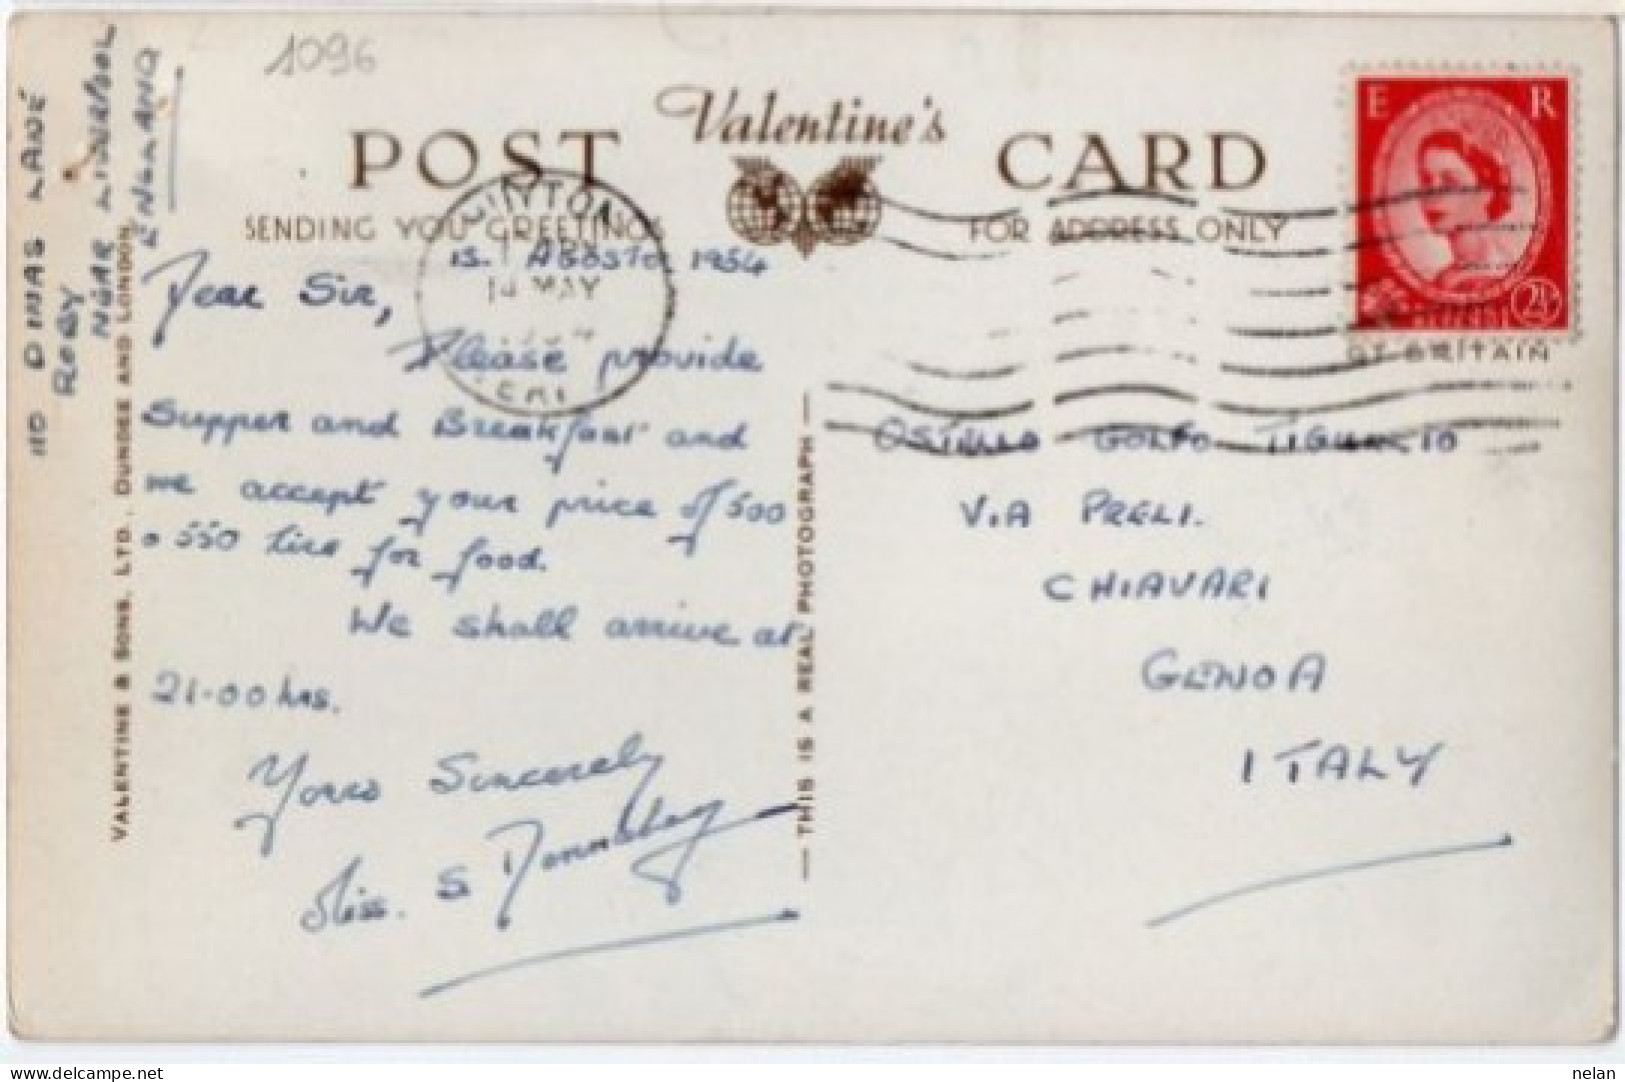 1096
POST
Valentine's
CARD
SENDING YOU GREETINGS
FOR ADDRESS ONLY
E R
2½
GT BRITAIN
HUYTON
14 MAY
110 DINAS LANE
ROBY
NEAR LIVERPOOL
ENGLAND
VALENTINE & SONS, LTD., DUNDEE AND LONDON.
15. AGOSTO. 1954
Dear Sir,
Please provide
Supper and Breakfast and
we accept your price of 500
o 550 lire for food.
We shall arrive at
21-00 hrs.
Yours Sincerely
Miss. S
THIS IS A REAL PHOTOGRAPH
OSTELLO GOLFO TIGULLIO
VIA PRELI.
CHIAVARI
GENOA
ITALY
delcampe.net
nelan